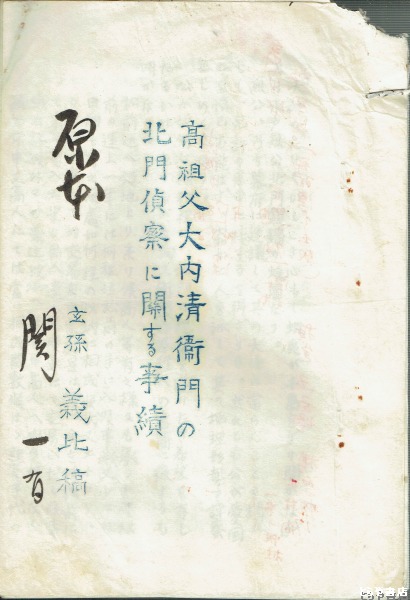 高祖父大内清衞門の
北門偵察に関する事績
玄孫 義比稿
原本
関 一有